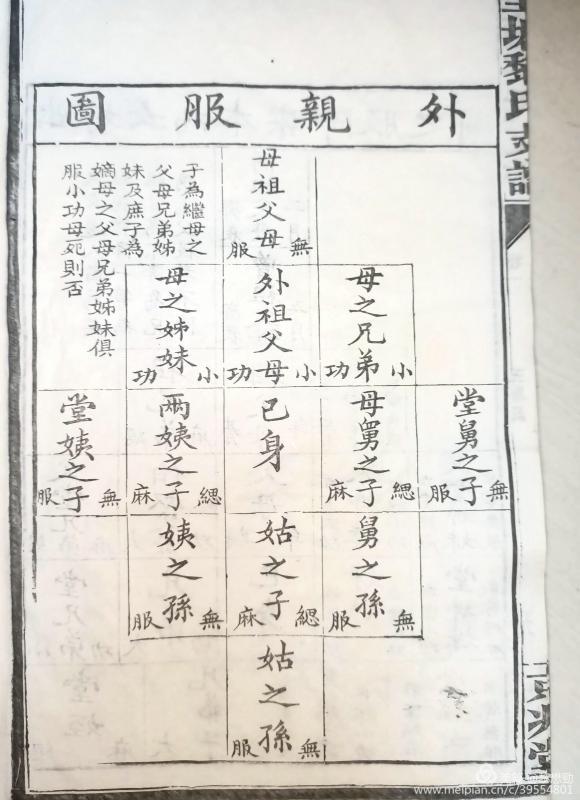 外親服圖
母祖父母
無服
子為繼母之
父母兄弟姊
妹及庶子為
嫡母之父母兄弟姊妹俱
服小功母死則否
母之兄弟
小功
外祖父母
小功
母之姊妹
小功
堂舅之子
無服
母舅之子
緦麻
己身
兩姨之子
緦麻
堂姨之子
無服
舅之孫
無服
姑之子
緦麻
姨之孫
無服
姑之孫
無服
氏支譜
www.meipian.cn/c/39554801